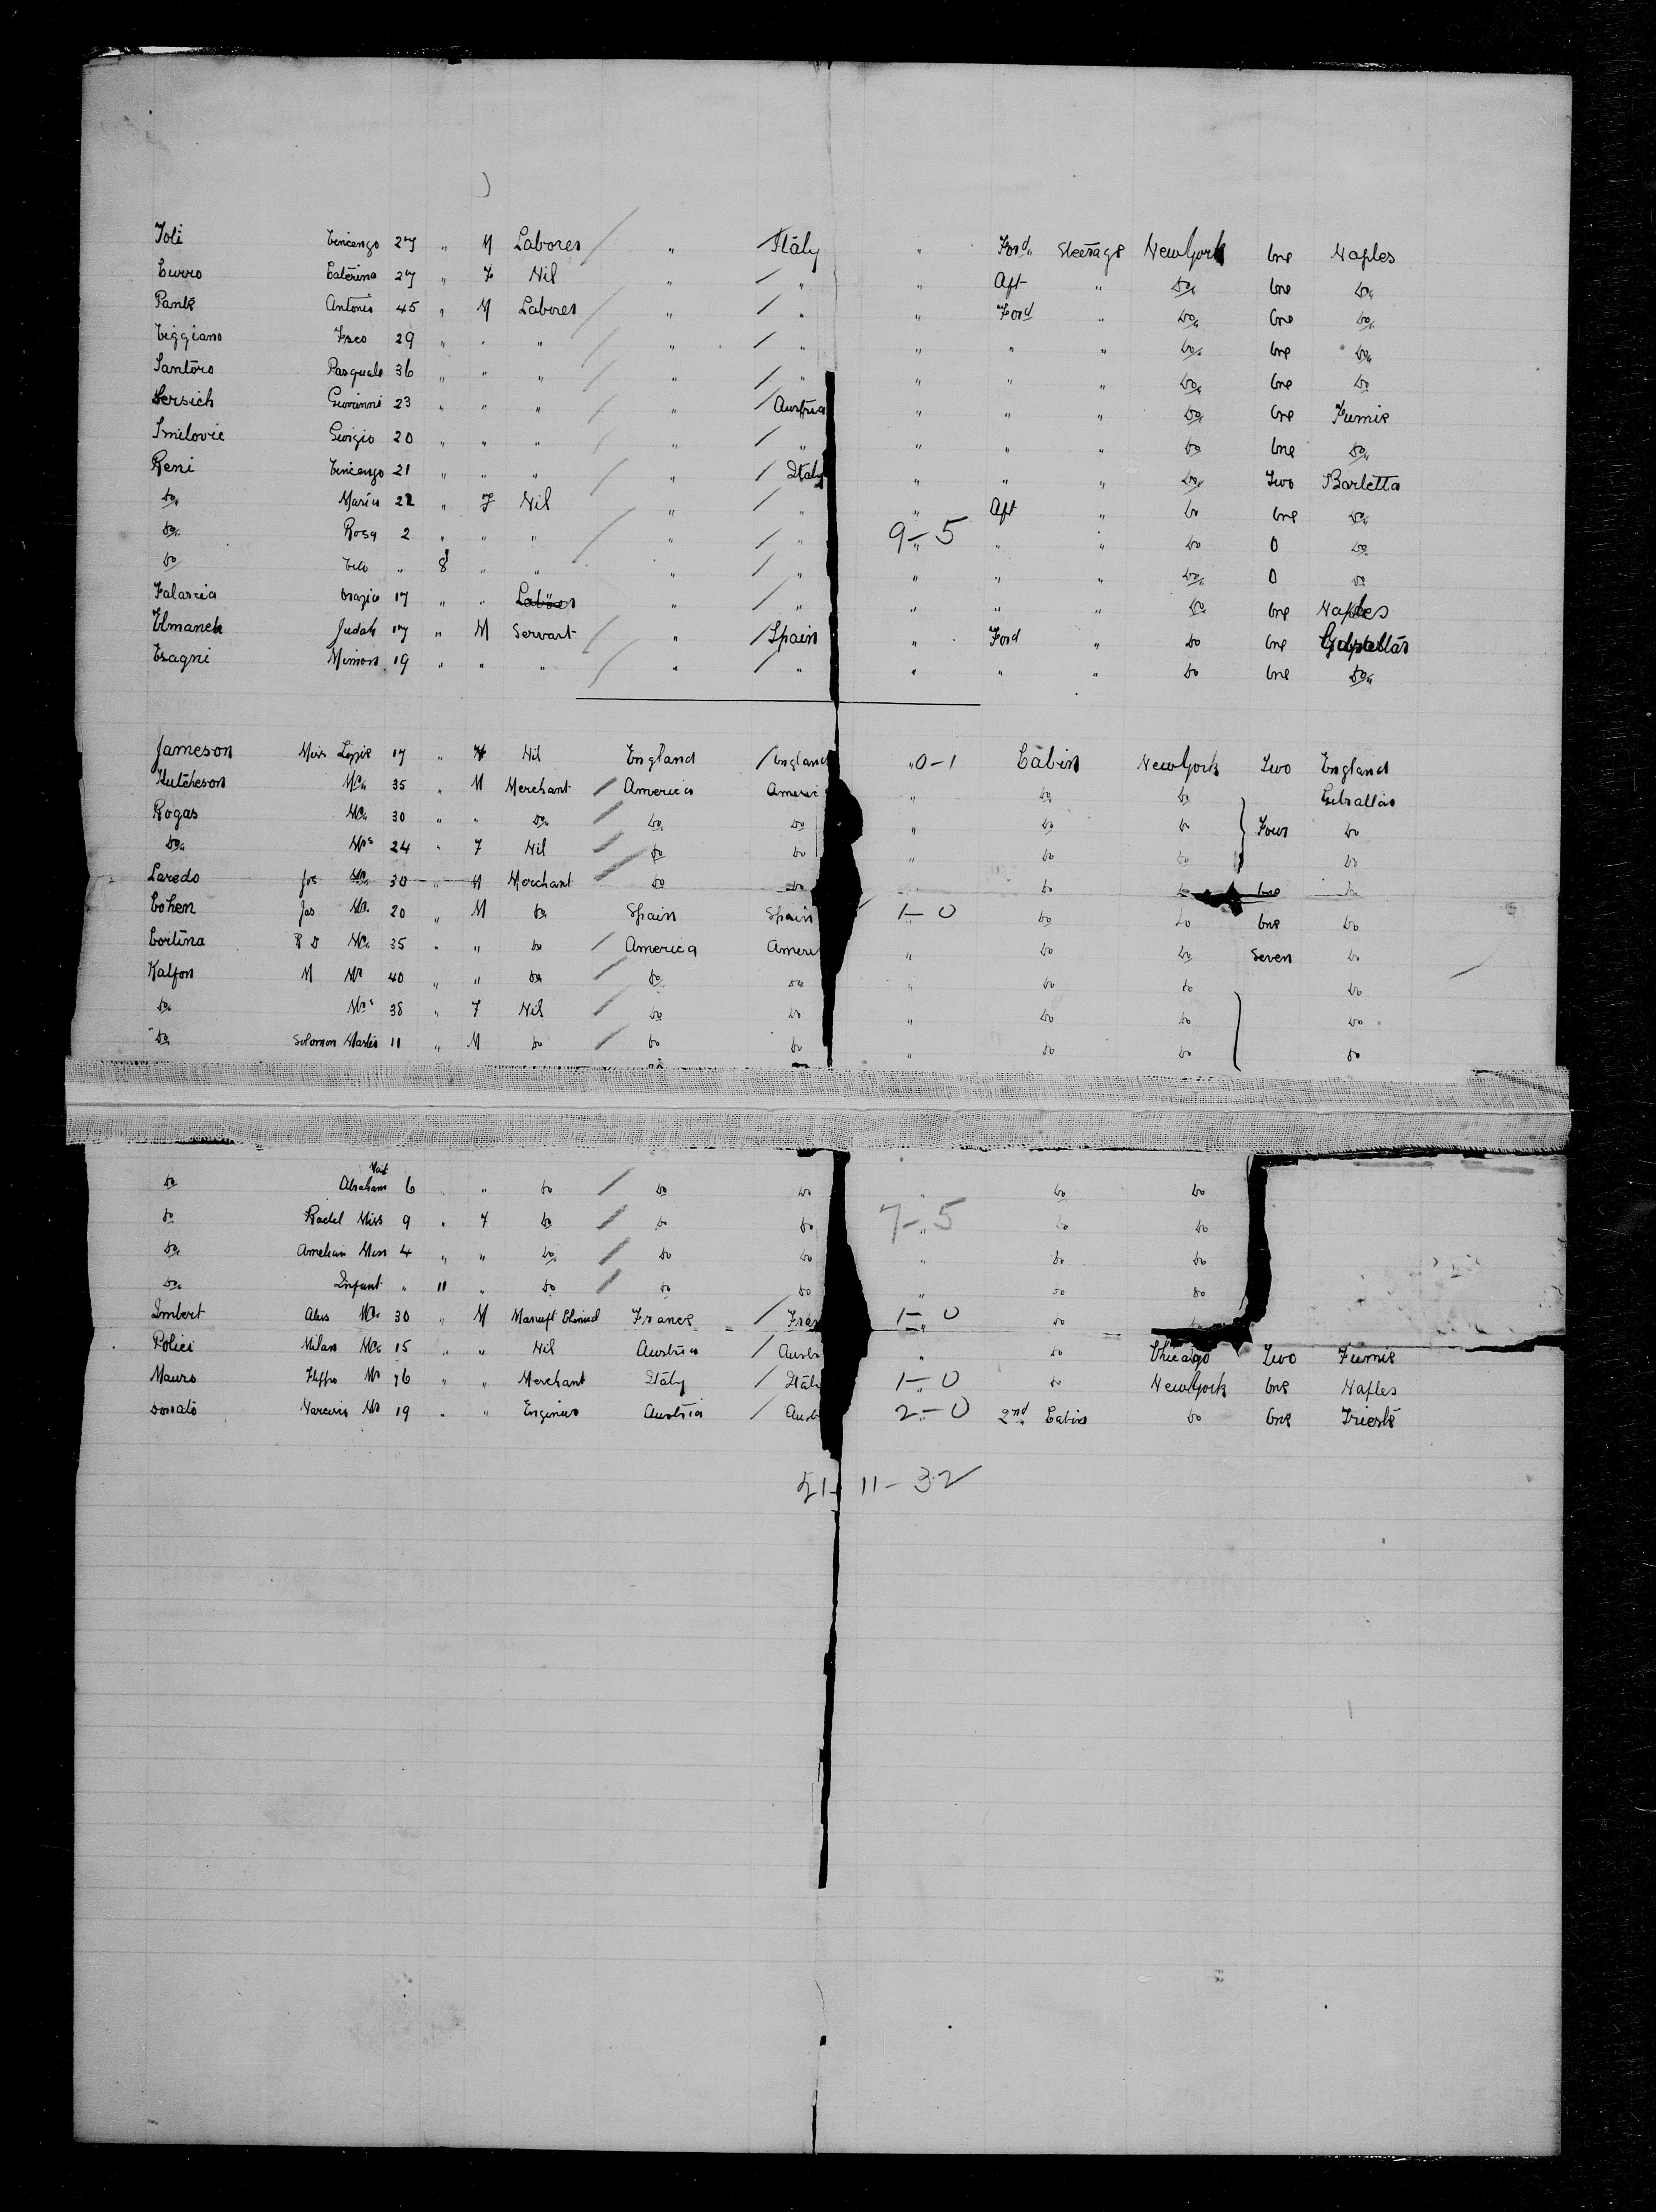 Toli Vincenzo 27 " M Laborer / " / Italy " Ford. Steerage New York One Naples
Curro Caterina 27 " F Nil " / " " Aft " Do. One Do.
Antonio 45 " M Laborer / " / " " Ford " Do. One Do.
Viggiano Fsco 29 " " " / " / " " " " Do. One Do.
Santoro Pasquale 36 " " " / " / " " " " Do. One Do
Giovanni 23 " " " / " / Austria " " " Do. One Fiume
Smilovic Giorgio 20 " " " / " / " " " " Do One Do.
Reni Vincenzo 21 " " " / " / Italy " " " Do. Two Barletta
Do. Maria 22 " F Nil / " / " " Aft " Do One Do.
Do. Rosa 2 " " " / " / " 9-5 " " " Do 0 Do.
Do Vito " 8 " " " / " " " " Do. 0 Do
Falascia Orazio 17 " " Laborer " / " " " " Do. One Naples
Judah 17 " M Servant / " / Spain " Ford " Do One Gibraltar
Mimon 19 " " " / " / " " " " Do One Do.
Jameson Miss Lizzie 17 " F Nil England / England " 0-1 Cabin New York Two England
Hutcheson Mr. 35 " M Merchant / America Americ " Do. Do Gibraltar
Rogas Mr. 30 " " Do. / Do. Do " Do Do Four Do
Do. Mrs 24 " F Nil / Do Do " Do Do Do
Laredo Jos Mr. 30 " M Merchant Do Do Do Do One Do
Cohen Jas Mr. 20 " M Do. Spain Spain 1-0 Do Do One Do
Cortina R D Mr. 35 " " Do / America Ameri " Do Do Seven Do
Kalfon M Mr 40 " " Do / Do. Do " Do Do Do
Do. Mrs 38 " F Nil / Do Do " Do Do Do
Do. Solomon Master 11 " M Do / Do Do " Do Do Do
Do Abraham 6 " " Do / Do Do " Do Do
Do Rachel Miss 9 " F Do / Do Do 7-5 " Do Do
Do. Miss 4 " " Do. / Do Do " Do Do
Do. Infant " 11 " Do / Do Do " Do Do
Imbert Mr. 30 " M France / Fran 1-0 " Do
Polici Milan Mr. 15 " " Nil Austria / Austr " Do Chicago Two Fiume
Mauro Mr 76 " " Merchant Italy / Italy 1-0 " Do New York One Naples
Donato Narciso Mr 19 " " Engineer Austria / Austr 2-0 " 2nd Cabin Do One Trieste
51- 11-32